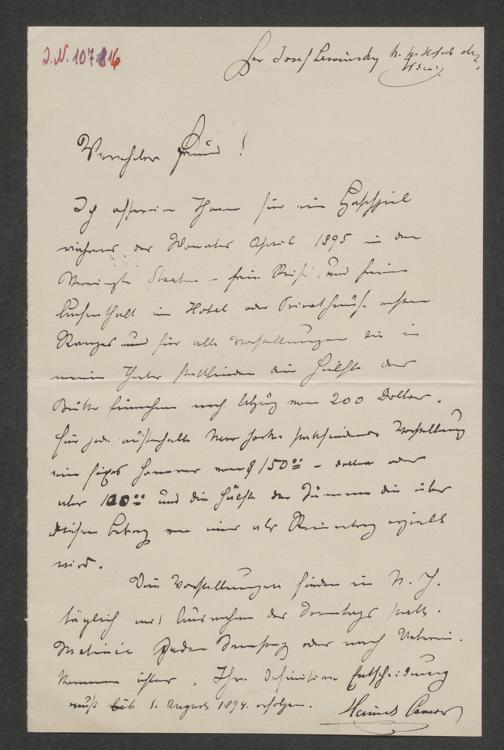 J.N. 107.816
Her Josef Lewinsky k. k. Hofsch
Wien
Verehrter Freund!
Ich offerire Ihnen für ein Gastspiel
während des Monates April 1895 in den
Vereinigte Staaten – freie Reise, und freien
Aufenthalt im Hotel oder Privathause ersten
Ranges und für alle Vorstellungen die in
meinem Theater stattfinden die Hälfte der
Brutto Einnahme nach Abzug von 200 Dollar.
Für jede außerhalb New Yorks stattfindende Vorstellung
ein fixes Honorar von $ 150.00 – Dollar oder
aber 100.00 und die Hälfte der Summe die über
diesen Betrag von mir als Reinertrag erzielt
wird.
Die Vorstellungen finden in N. Y.
täglich mit Ausnahme des Sonntags statt.
Matinée Jeden Samstag oder nach Uebereinkommen
öfter. Ihre definitive Entscheidung
muß bis 1. August 1894. erfolgen.
Heinrich Conried